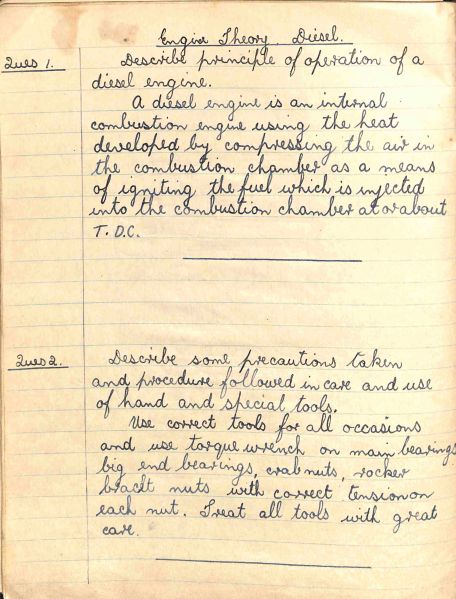 Engine Theory Diesel.
Ques 1. Describe principle of operation of a
diesel engine.
A diesel engine is an internal
combustion engine using the heat
developed by compressing the air in
the combustion chamber as a means
of igniting the fuel which is injected
into the combustion chamber at or about
T.D.C.
Ques 2. Describe some precautions taken
and procedure followed in care and use
of hand and special tools.
Use correct tools for all occasions
and use torque wrench on main bearings
big end bearings, crab nuts, rocker
brackt nuts with correct tension on
each nut. Treat all tools with great
care.